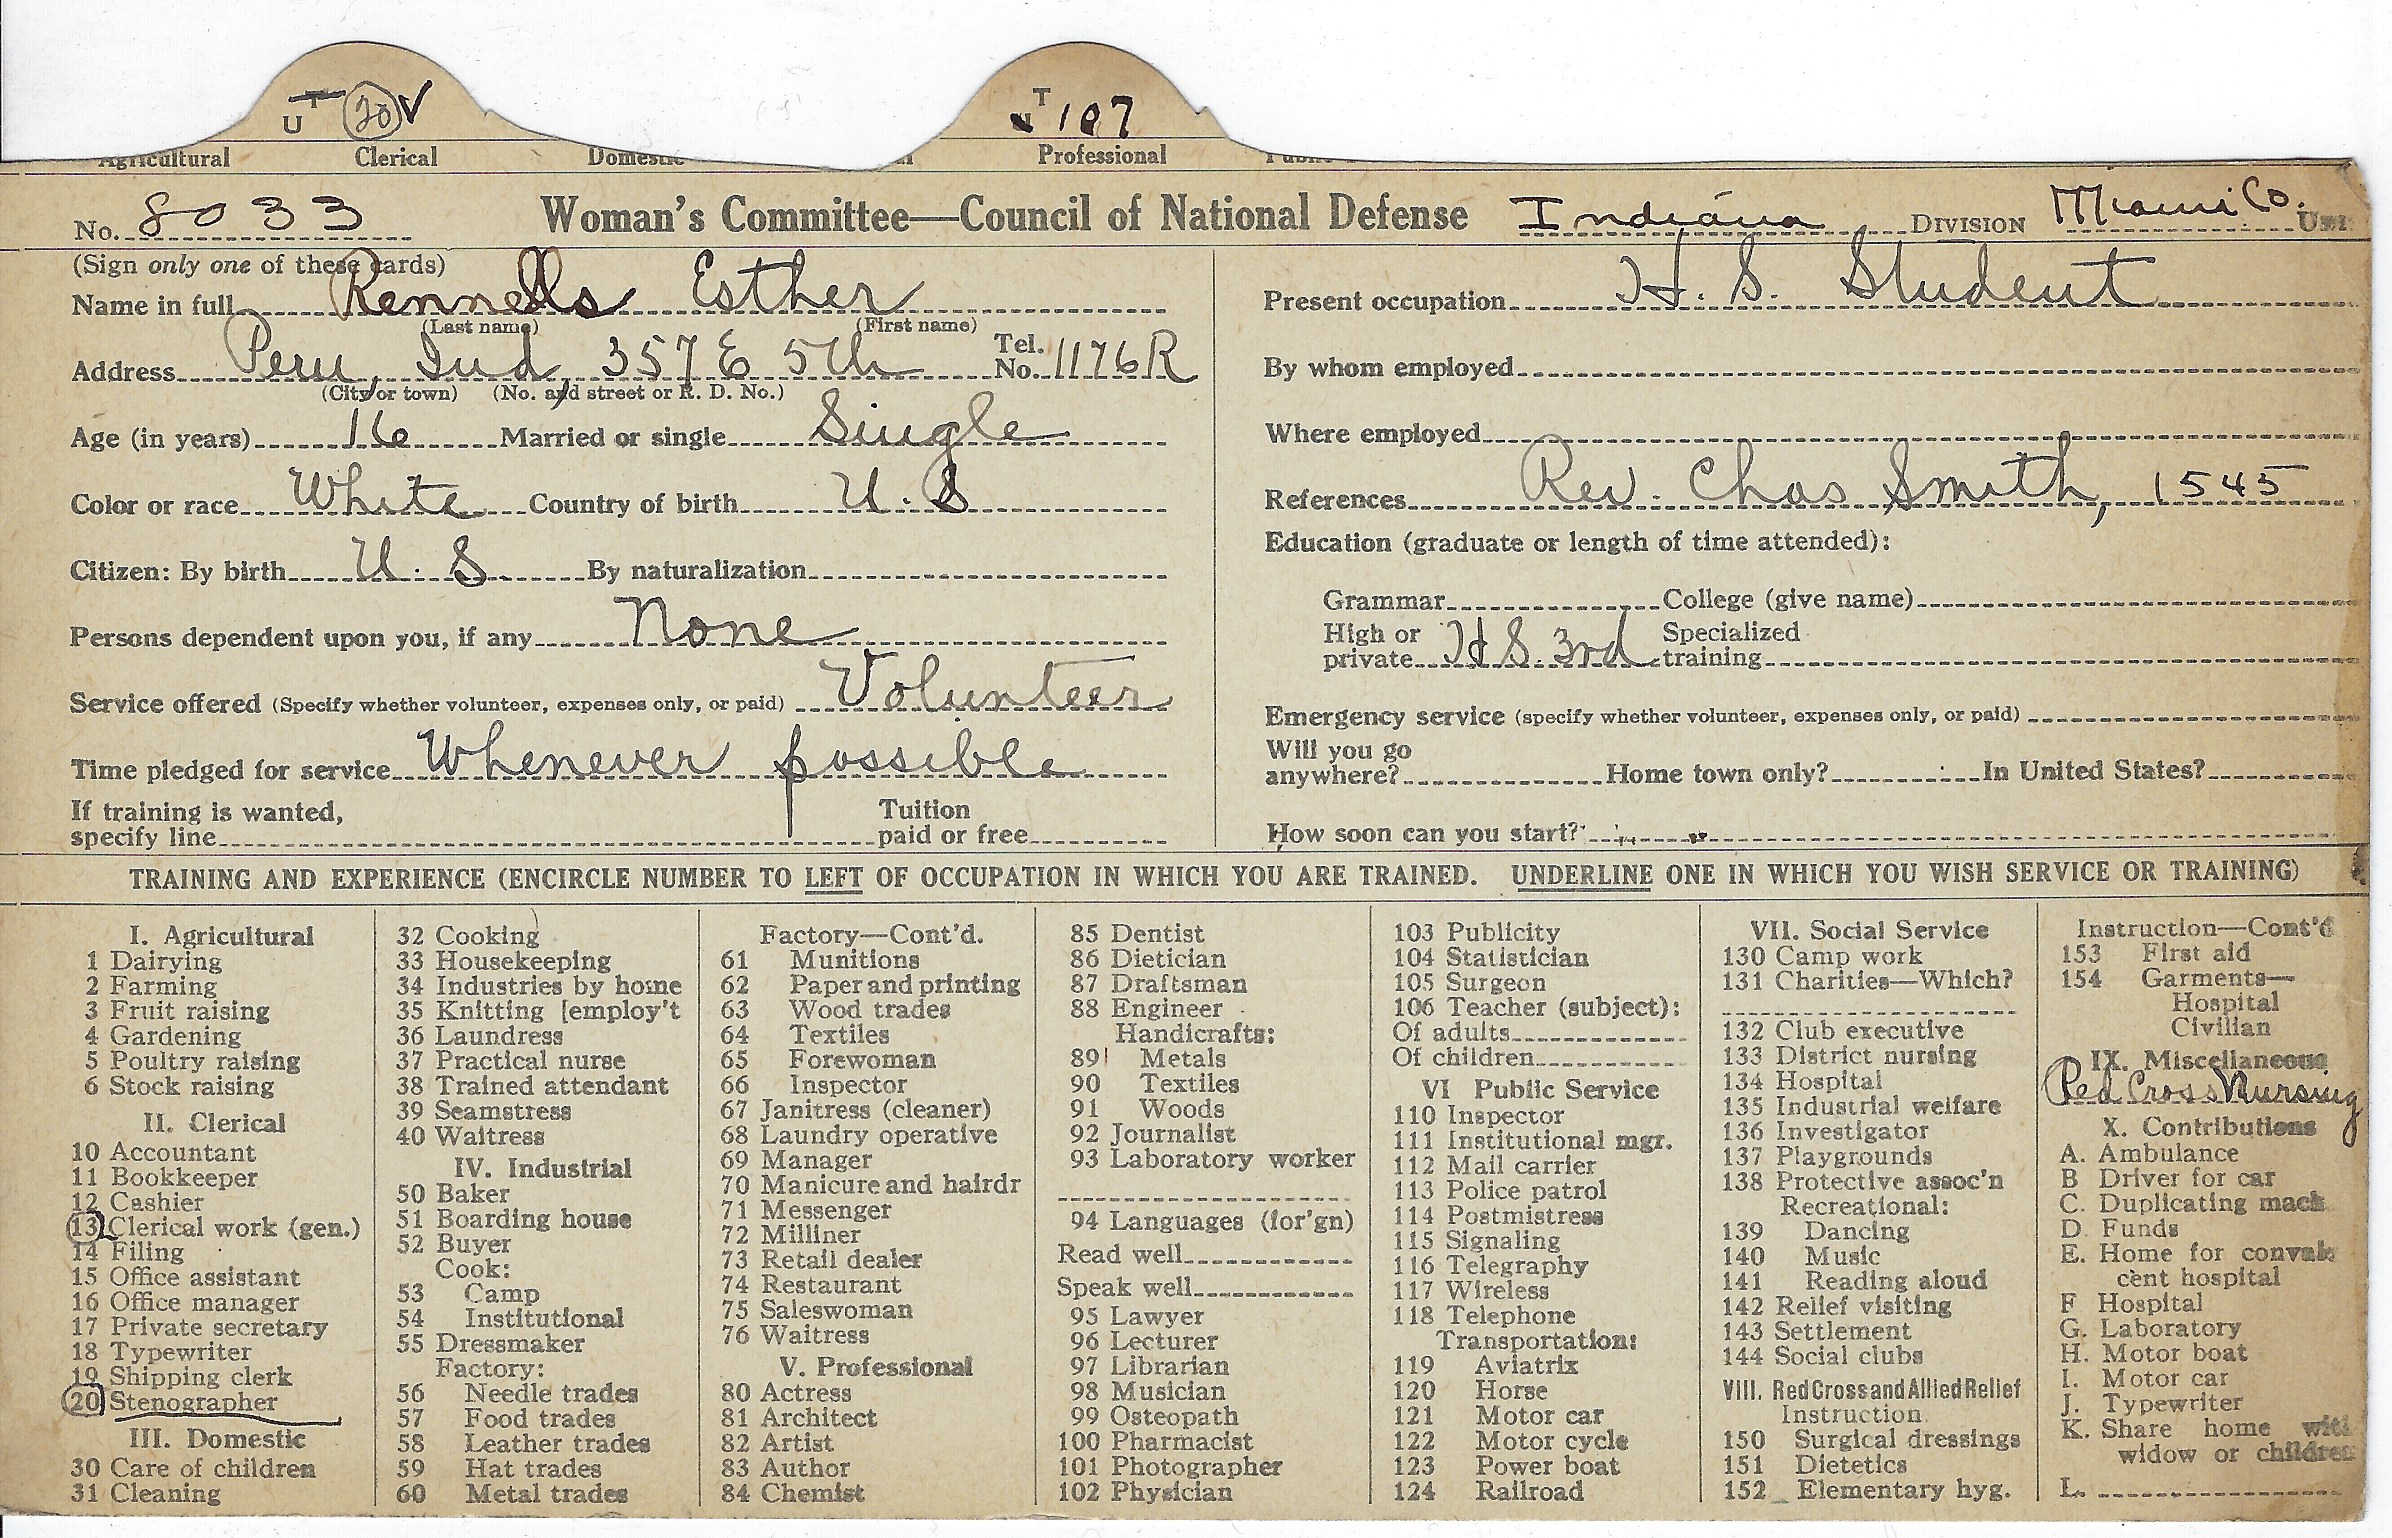 T
U 20 V
T
U 107
Agricultural Clerical Domestic Professional
No. 8033 Woman's Committee—Council of National Defense Indiana DIVISION Miami Co.
(Sign only one of these cards)
Name in full Rennells Esther
(Last name) (First name)
Address Peru, Ind, 357 E 5th Tel. No. 1176R
(City or town) (No. and street or R. D. No.)
Age (in years) 16 Married or single Single
Color or race White Country of birth U. S
Citizen: By birth U. S. By naturalization
Persons dependent upon you, if any None
Service offered (Specify whether volunteer, expenses only, or paid) Volunteer
Time pledged for service Whenever possible
If training is wanted,
specify line
Tuition
paid or free
Present occupation H. S. Student
By whom employed
Where employed
References Rev. Chas Smith, 1545
Education (graduate or length of time attended):
Grammar College (give name)
High or
private H S. 3rd
Specialized
training
Emergency service (specify whether volunteer, expenses only, or paid)
Will you go
anywhere? Home town only? In United States?
How soon can you start?
TRAINING AND EXPERIENCE (ENCIRCLE NUMBER TO LEFT OF OCCUPATION IN WHICH YOU ARE TRAINED. UNDERLINE ONE IN WHICH YOU WISH SERVICE OR TRAINING)
I. Agricultural
1 Dairying
2 Farming
3 Fruit raising
4 Gardening
5 Poultry raising
6 Stock raising
II. Clerical
10 Accountant
11 Bookkeeper
12 Cashier
13 Clerical work (gen.)
14 Filing
15 Office assistant
16 Office manager
17 Private secretary
18 Typewriter
19 Shipping clerk
20 Stenographer
III. Domestic
30 Care of children
31 Cleaning
32 Cooking
33 Housekeeping
34 Industries by home
35 Knitting [employ't
36 Laundress
37 Practical nurse
38 Trained attendant
39 Seamstress
40 Waitress
IV. Industrial
50 Baker
51 Boarding house
52 Buyer
Cook:
53 Camp
54 Institutional
55 Dressmaker
Factory:
56 Needle trades
57 Food trades
58 Leather trades
59 Hat trades
60 Metal trades
Factory—Cont'd.
61 Munitions
62 Paper and printing
63 Wood trades
64 Textiles
65 Forewoman
66 Inspector
67 Janitress (cleaner)
68 Laundry operative
69 Manager
70 Manicure and hairdr
71 Messenger
72 Milliner
73 Retail dealer
74 Restaurant
75 Saleswoman
76 Waitress
V. Professional
80 Actress
81 Architect
82 Artist
83 Author
84 Chemist
85 Dentist
86 Dietician
87 Draftsman
88 Engineer
Handicrafts:
89 Metals
90 Textiles
91 Woods
92 Journalist
93 Laboratory worker
94 Languages (for'gn)
Read well
Speak well
95 Lawyer
96 Lecturer
97 Librarian
98 Musician
99 Osteopath
100 Pharmacist
101 Photographer
102 Physician
103 Publicity
104 Statistician
105 Surgeon
106 Teacher (subject):
Of adults
Of children
VI Public Service
110 Inspector
111 Institutional mgr.
112 Mail carrier
113 Police patrol
114 Postmistress
115 Signaling
116 Telegraphy
117 Wireless
118 Telephone
Transportation:
119 Aviatrix
120 Horse
121 Motor car
122 Motor cycle
123 Power boat
124 Railroad
VII. Social Service
130 Camp work
131 Charities—Which?
132 Club executive
133 District nursing
134 Hospital
135 Industrial welfare
136 Investigator
137 Playgrounds
138 Protective assoc'n
Recreational:
139 Dancing
140 Music
141 Reading aloud
142 Relief visiting
143 Settlement
144 Social clubs
VIII. Red Cross and Allied Relief
Instruction
150 Surgical dressings
151 Dietetics
152 Elementary hyg.
Instruction—Cont'd
153 First aid
154 Garments—
Hospital
Civilian
IX. Miscellaneous
Red Cross Nursing
X. Contributions
A. Ambulance
B Driver for car
C. Duplicating mach
D. Funds
E. Home for convales
cent hospital
F Hospital
G. Laboratory
H. Motor boat
I. Motor car
J. Typewriter
K. Share home with
widow or children
L.